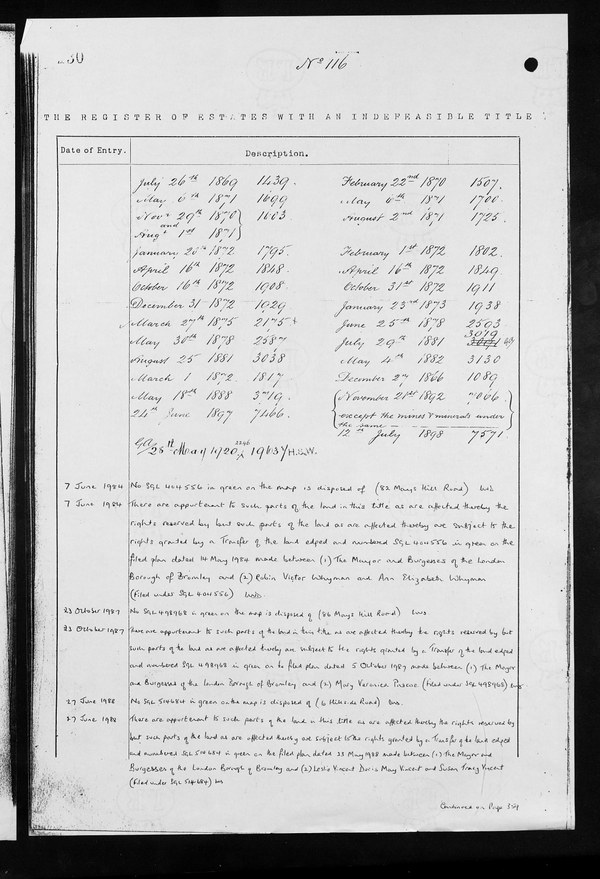 230
No 116
THE REGISTER OF ESTATES WITH AN INDEFEASIBLE TITLE
Date of Entry. Description.
July 26th 1869 1439. February 22nd 1870 1507.
May 6th 1871 1699 May 6th 1871 1700.
Novr 29th 1870 } 1603 August 2nd 1871 1725.
and
Augt 1st 1871 }
January 1872 1795. February 1st 1872 1802.
April 16th 1872 1848. April 16th 1872 1849
October 16th 1872 1908. October 31st 1872 1911
December 31 1872 1929 January 23rd 1873 1938
March 27th 1875 2175 June 25th 1878 2593
May 30th 1878 2587 July 29th 1881 3079
August 25 1881 3038 May 4th 1882 3130
March 1 1872. 1817 December 1866 1089
May 18th 1888 3719. (November 21st 1892 7066.)
24th June 1897 7466. except the mines & minerals under
the same
12th July 1898 7571.
28th May 1920 19637 H.W.
7 June 1984 No SGL 404556 in green on the map is disposed of (82 Mays Hill Road)
7 June 1984 There are appurtenant to such parts of the land in this title as are affected thereby the
rights reserved by but such parts of the land as are affected thereby are subject to the
rights granted by a Transfer of the land edged and numbered SGL 404556 in green on the
filed plan dated 14 May 1984 made between (1) The Mayor and Burgesses of the London
Borough of Bromley and (2) Robin Victor Whyman and Ann Elizabeth Whyman
(Filed under SGL 404556)
23 October 1987 No SGL 498968 in green on the map is disposed of (86 Mays Hill Road)
23 October 1987 There are appurtenant to such parts of the land in this title as are affected thereby the rights reserved by but
such parts of the land as are affected thereby are subject to the rights granted by a Transfer of the land edged
and numbered SGL 498968 in green on the filed plan dated 5 October 1987 made between (1) The Mayor
and Burgesses of the London Borough of Bromley and (2) Mary Veronica Pascoe (filed under SGL 498968)
27 June 1988 No SGL 514684 in green on the map is disposed of (6 Hillside Road)
27 June 1988 There are appurtenant to such parts of the land in this title as are affected thereby the rights reserved by
but such parts of the land as are affected thereby are subject to the rights granted by a Transfer of the land edged
and numbered SGL 514684 in green on the filed plan dated 23 May 1988 made between (1) The Mayor and
Burgesses of the London Borough of Bromley and (2) Leslie Vincent Doris May Vincent and Susan Tracy Vincent
(filed under SGL 514684)
Continued on Page